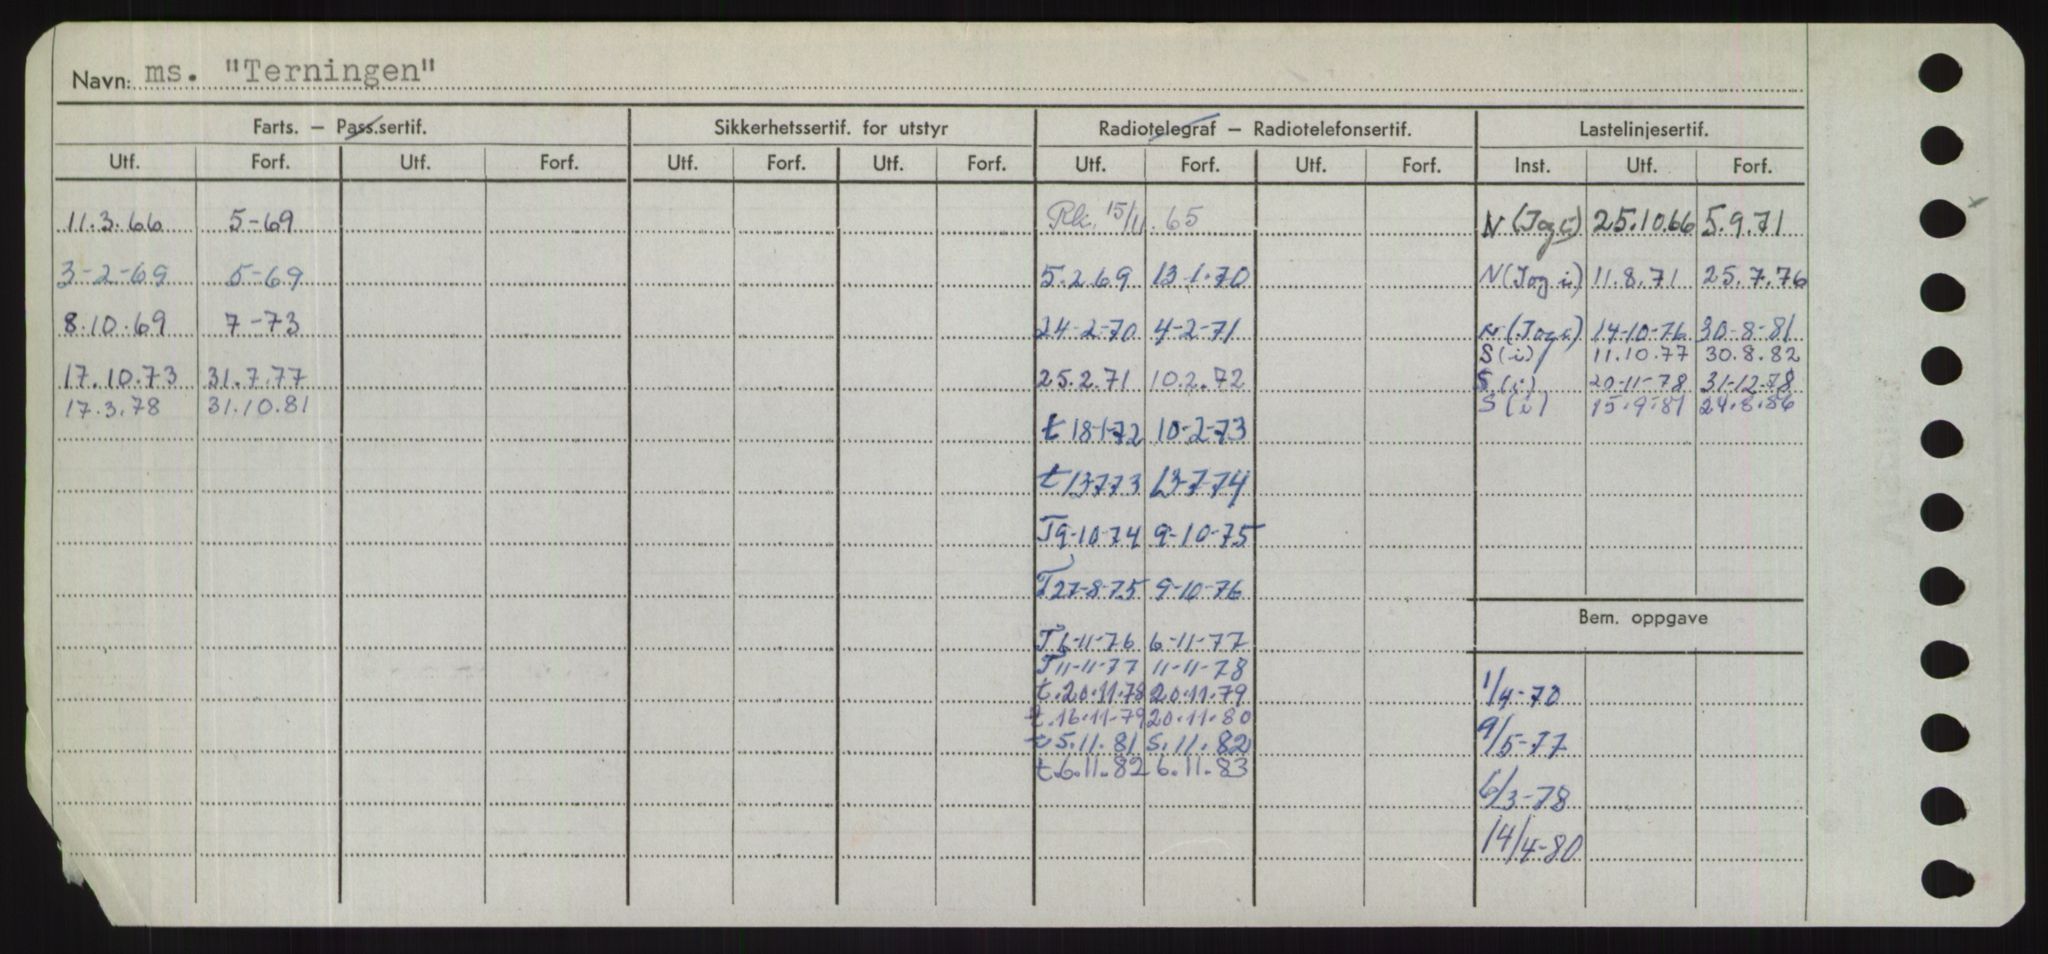 Navn: ms. "Terningen"
Farts. – Pass.sertif. Sikkerhetssertif. for utstyr Radiotelegraf – Radiotelefonsertif. Lastelinjesertif.
Utf. Forf. Utf. Forf. Utf. Forf. Utf. Forf. Utf. Forf. Utf. Forf. Inst. Utf. Forf.
11.3.66 5-69 15/11.65 N (T og i) 25.10.66 5.9.71
3-2-69 5-69 5.2.69 13-1.70 N (T og i) 11.8.71 25.7.76
8.10.69 7-73 24-2-70 4-2-71 N (T og i) 14-10-76 30-8-81
S (i) 11.10.77 30.8.82
17.10.73 31.7.77 25.2.71 10.2.72 S (i) 20-11-78 31-12-78
17.3.78 31.10.81 S (i) 15.9.81 24.8.86
t 18-1-72 10-2-73
t 13-7-73 13-7-74
T 9-10-74 9-10-75
T 27-8-75 9-10-76
Bem. oppgave
T 6-11-76 6-11-77
T 11-11-77 11-11-78
t. 20.11.78 20.11.79 1/4-70
t. 16.11-79 20.11.80
t 5.11.81 5.11.82 9/5-77
t. 6.11.82 6.11.83
6/3-78
14/4-80